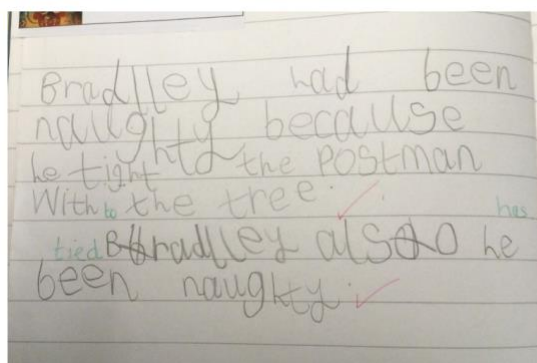 Bradlley had been
naughty because
he tight the Postman
With to the tree.
has
tied Bradlley also he
been naughty.